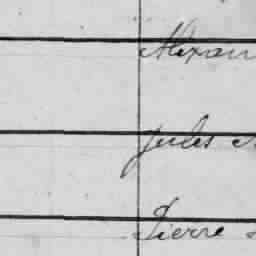 Alexan
Jules
Pierre